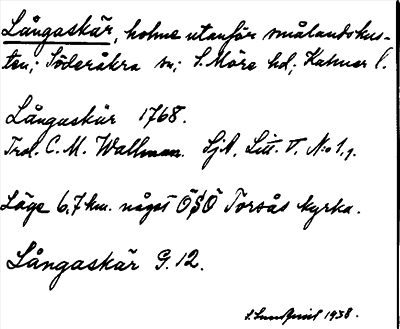 Långaskär, holme utanför smålandskus-
ten; Söderåkra sn; S. Möre hd; Kalmar l.
Långaskär 1768.
Trol. C. M. Wallman. SjA, Litt. V, N:o 1,1.
Läge 6,7 km. något ÖSÖ Torsås kyrka.
Långaskär G. 12.
S. Lundquist 1938.